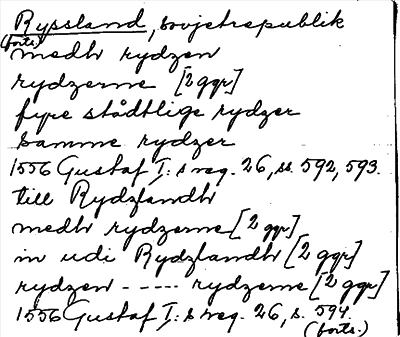 Ryssland, sovjetrepublik
(forts.)
medh rydzen
rydzerne [2 ggr]
fyre stådtlige rydzer
samme rydzer
1556 Gustaf I:s reg. 26, ss. 592, 593.
till Rydzlandh
medh rydzerne [2 ggr]
in udi Rydzlandh [2 ggr]
rydzen ----- rydzerne [2 ggr]
1556 Gustaf I:s reg. 26, s. 594.
(forts.)